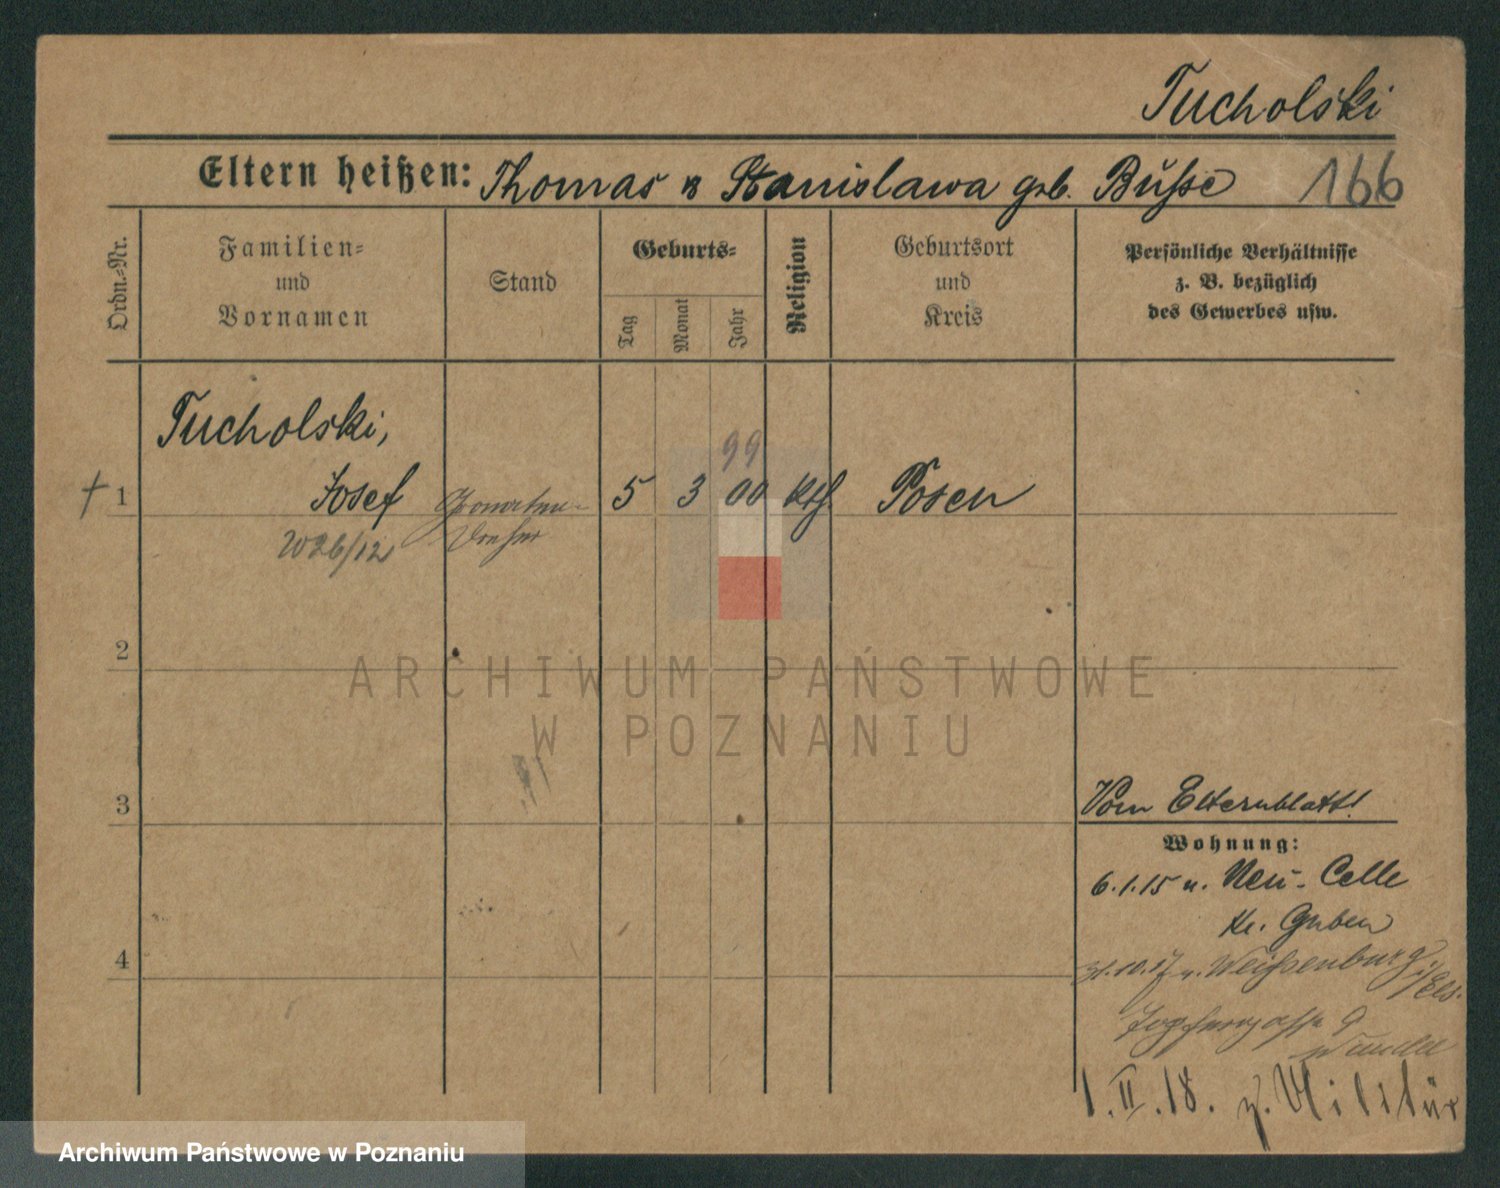 Tucholski
Eltern heißen: Thomas u Stanislawa geb. Busse 166
Ordn.-Nr.
Familien-
und
Vornamen
Stand
Geburts-
Tag
Monat
Jahr
Religion
Geburtsort
und
Kreis
Persönliche Verhältnisse
z. B. bezüglich
des Gewerbes usw.
Tucholski,
99
† 1 Josef Granaten- 5 3 00 kth. Posen
dreher
W26/12
2
3
4
Vom Elternblatt!
Wohnung:
6.1.15 n. Neu-Celle
Kr. Guben
31.10.17 n. Weißenburg i/Els.
9
1.II.18. z. Militär
ARCHIWUM PAŃSTWOWE
W POZNANIU
Archiwum Państwowe w Poznaniu